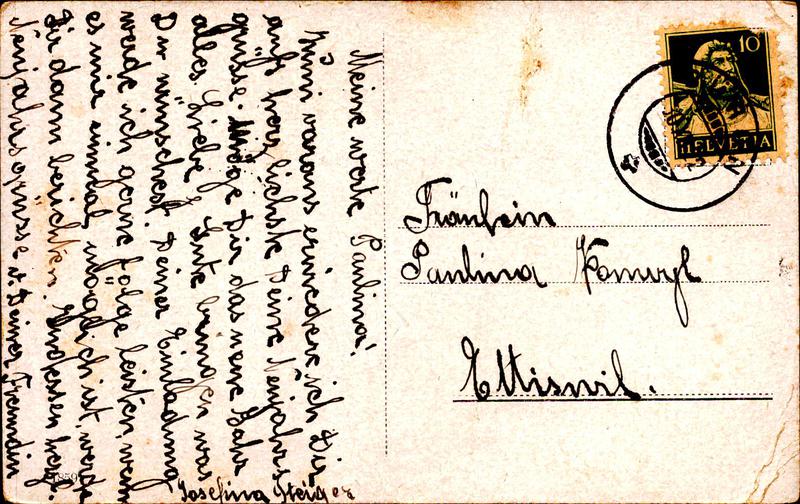 Meine werte Paulina!
Zum voraus erwiedere ich Dir
aufs herzlichste Deine Neujahrs
grüsse. Möge Dir das neue Jahr
alles Liebe & Gute bringen was
Du wünschest. Deiner Einladung
werde ich gerne Folge leisten, wenn
es mir einmal möglich ist, werde
Dir dann berichten. Indessen herzl.
Neujahrsgrüsse v. Deiner Freundin
Josefina Steiger
10
HELVETIA
Fräulein
Paulina
Ettiswil.